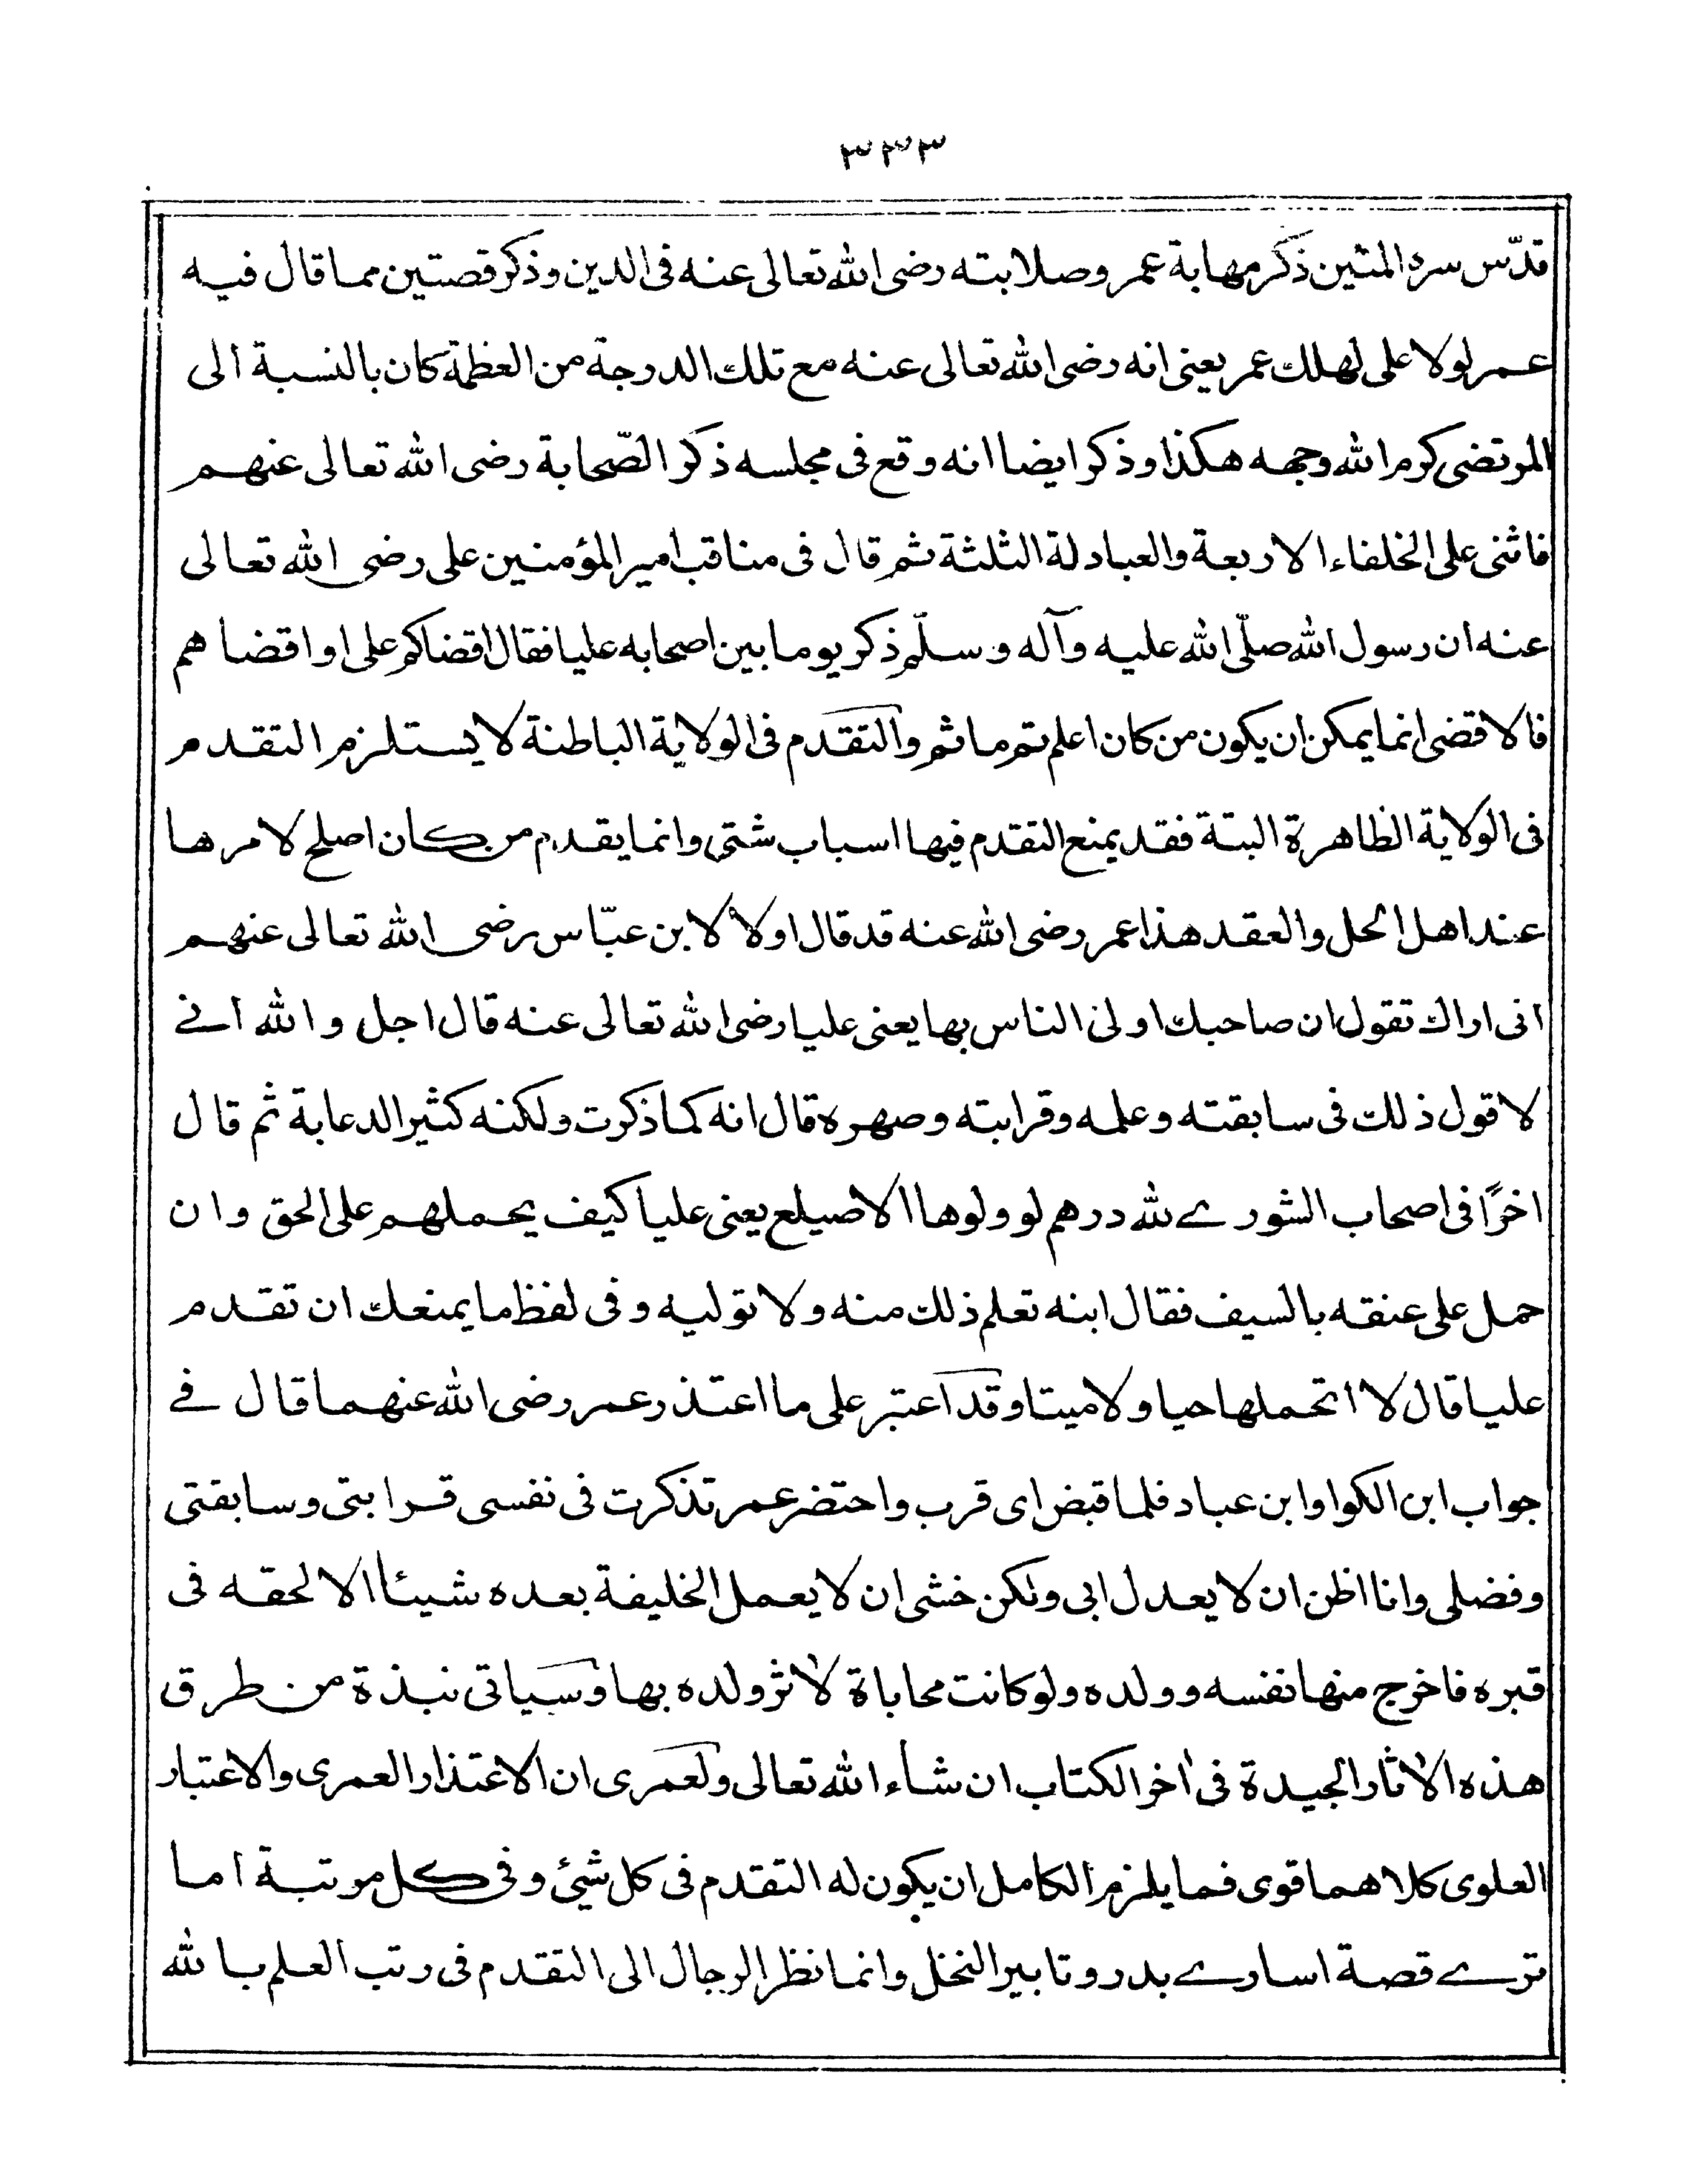 ٣٣٣
قدّس سره المتين ذكر مهابة عمر وصلابته رضى الله تعالى عنه فى الدين وذكر قصتين مما قال فيه
عمر لولا على لهلك عمر يعنى انه رضى الله تعالى عنه مع تلك الدرجة من العظمة كان بالنسبة الى
المرتضى كرم الله وجهه هكذا وذكر ايضا انه وقع فى مجلسه ذكر الصّحابة رضى الله تعالى عنهم
فاثنى على الخلفاء الاربعة والعبادلة الثلثة ثم قال فى مناقب امير المؤمنين على رضى الله تعالى
عنه ان رسول الله صلّى الله عليه وآله وسلّم ذكر يوما بين اصحابه عليا فقال اقضاكم على او اقضاهم
فالاقضى انما يمكن ان يكون من كان اعلم تم ما ثم والتقدم فى الولاية الباطنة لا يستلزم التقدم
فى الولاية الظاهرة البتة فقد يمنع التقدم فيها اسباب شتى وانما يقدم من كان اصلح لامرها
عند اهل الحل والعقد هذا عمر رضى الله عنه قد قال اولا لابن عبّاس رضى الله تعالى عنهم
انى اراك تقول ان صاحبك اولى الناس بها يعنى عليا رضى الله تعالى عنه قال اجل والله انے
لاقول ذلك فى سابقته وعلمه وقرابته وصهره قال انه كما ذكرت ولكنه كثير الدعابة ثم قال
اخرًا فى اصحاب الشورے لله درهم لو ولوها الاصيلع يعنى عليا كيف يحملهم على الحق وان
حمل على عنقه بالسيف فقال ابنه تعلم ذلك منه ولا توليه وفى لفظ ما يمنعك ان تقدم
عليا قال لا اتحملها حيا ولا ميتا وقد اعتبر على ما اعتذر عمر رضى الله عنهما قال فے
جواب ابن الكوا وابن عباد فلما قبض اى قرب واحتضر عمر تذكرت فى نفسى قرابتى وسابقتى
وفضلى وانا اظن ان لا يعدل ابى ولكن خشى ان لا يعمل الخليفة بعده شيئا الا لحقه فى
قبره فاخرج منها نفسه وولده ولو كانت محاباة لاثر ولده بها وسياتى نبذة من طرق
هذه الاثار الجيدة فى اخر الكتاب ان شاء الله تعالى ولعمرى ان الاعتذار العمرى والاعتبار
العلوى كلاهما قوى فما يلزم الكامل ان يكون له التقدم فى كل شئ وفى كل مرتبة اما
ترے قصة اسارے بدر وتابير النخل وانما نظر الرجال الى التقدم فى رتب العلم بالله